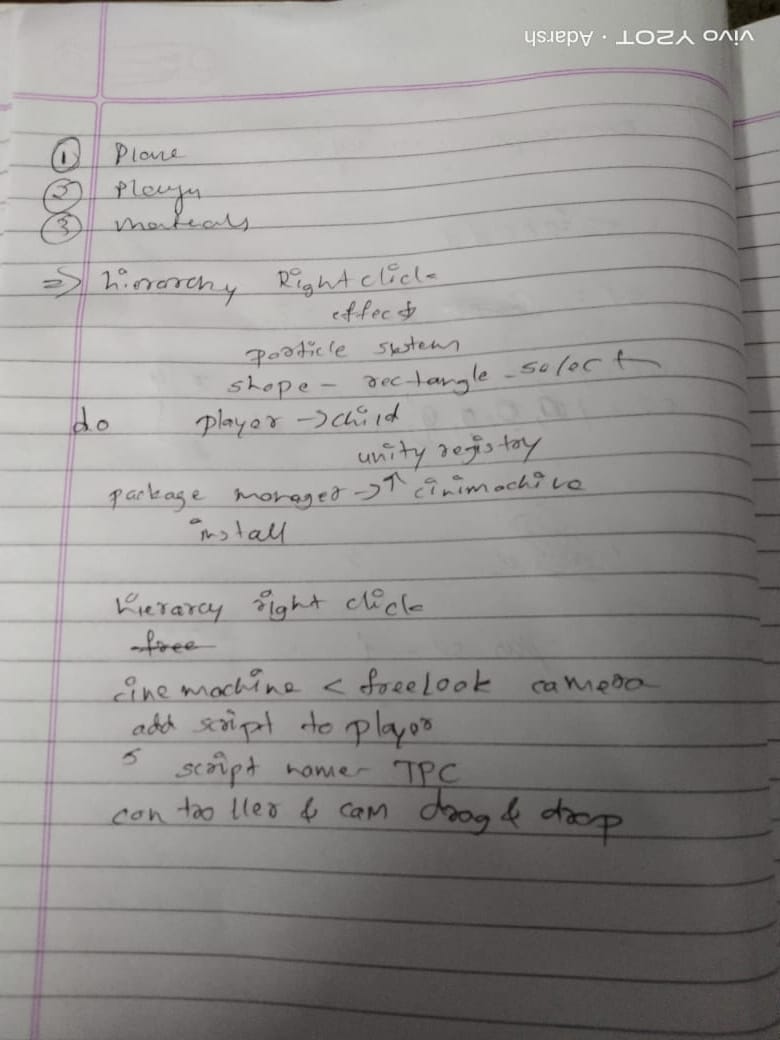 vivo Y20T · Adarsh
① Plane
② Player
③ materials
=> hierarchy Right click
effect
particle system
shape - rectangle - select
do player -> child
unity registry
package manager -> ↑ cinimachine
install
hierarcy right click
free
cine machine < freelook camera
add script to player
5 script name - TPC
controller & cam drag & drop